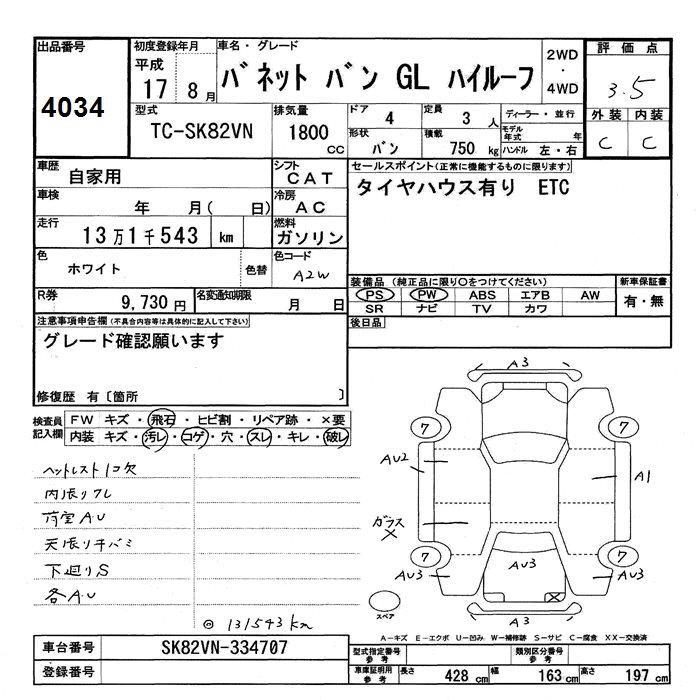 出品番号
4034
初度登録年月
平成
17 8月
車名・グレード
バネット バン GL ハイルーフ
2WD
・
4WD
評価点
3.5
外装 内装
C C
型式
TC-SK82VN
排気量
1800 cc
ドア
4
定員
3 人
形状
バン
積載
750 kg
ディーラー・並行
モデル年式 年
ハンドル 左・右
車歴
自家用
シフト
CAT
車検
年 月( 日)
冷房
AC
走行
13万1千543 km
燃料
ガソリン
色
ホワイト
色替
色コード
A2W
R券
9,730円
名変通知期限
月 日
セールスポイント(正常に機能するものに限ります)
タイヤハウス有り ETC
装備品 (純正品に限り○をつけてください)
PS PW ABS エアB AW
SR ナビ TV カワ
新車保証書
有・無
後日品
注意事項申告欄(不具合内容等は具体的に記入して下さい)
グレード確認願います
修復歴 有〔箇所 〕
検査員記入欄
FW キズ・飛石・ヒビ割・リペア跡・×要
内装 キズ・汚レ・コゲ・穴・スレ・キレ・破レ
ヘットレスト1コ欠
内張りスレ
荷室AU
天張りチバミ
下廻りS
各AU
◎ 131543km
A3
7
7
AU2
A1
ガラス
×
7
7
AU3
AU3
AU3
×
スペア
A3
A-キズ E-エクボ U-凹み W-補修跡 S-サビ C-腐食 XX-交換済
車台番号
SK82VN-334707
登録番号
型式指定番号
参考
類別区分番号
参考
車庫証明用
参考
長さ 428 cm 幅 163 cm 高さ 197 cm